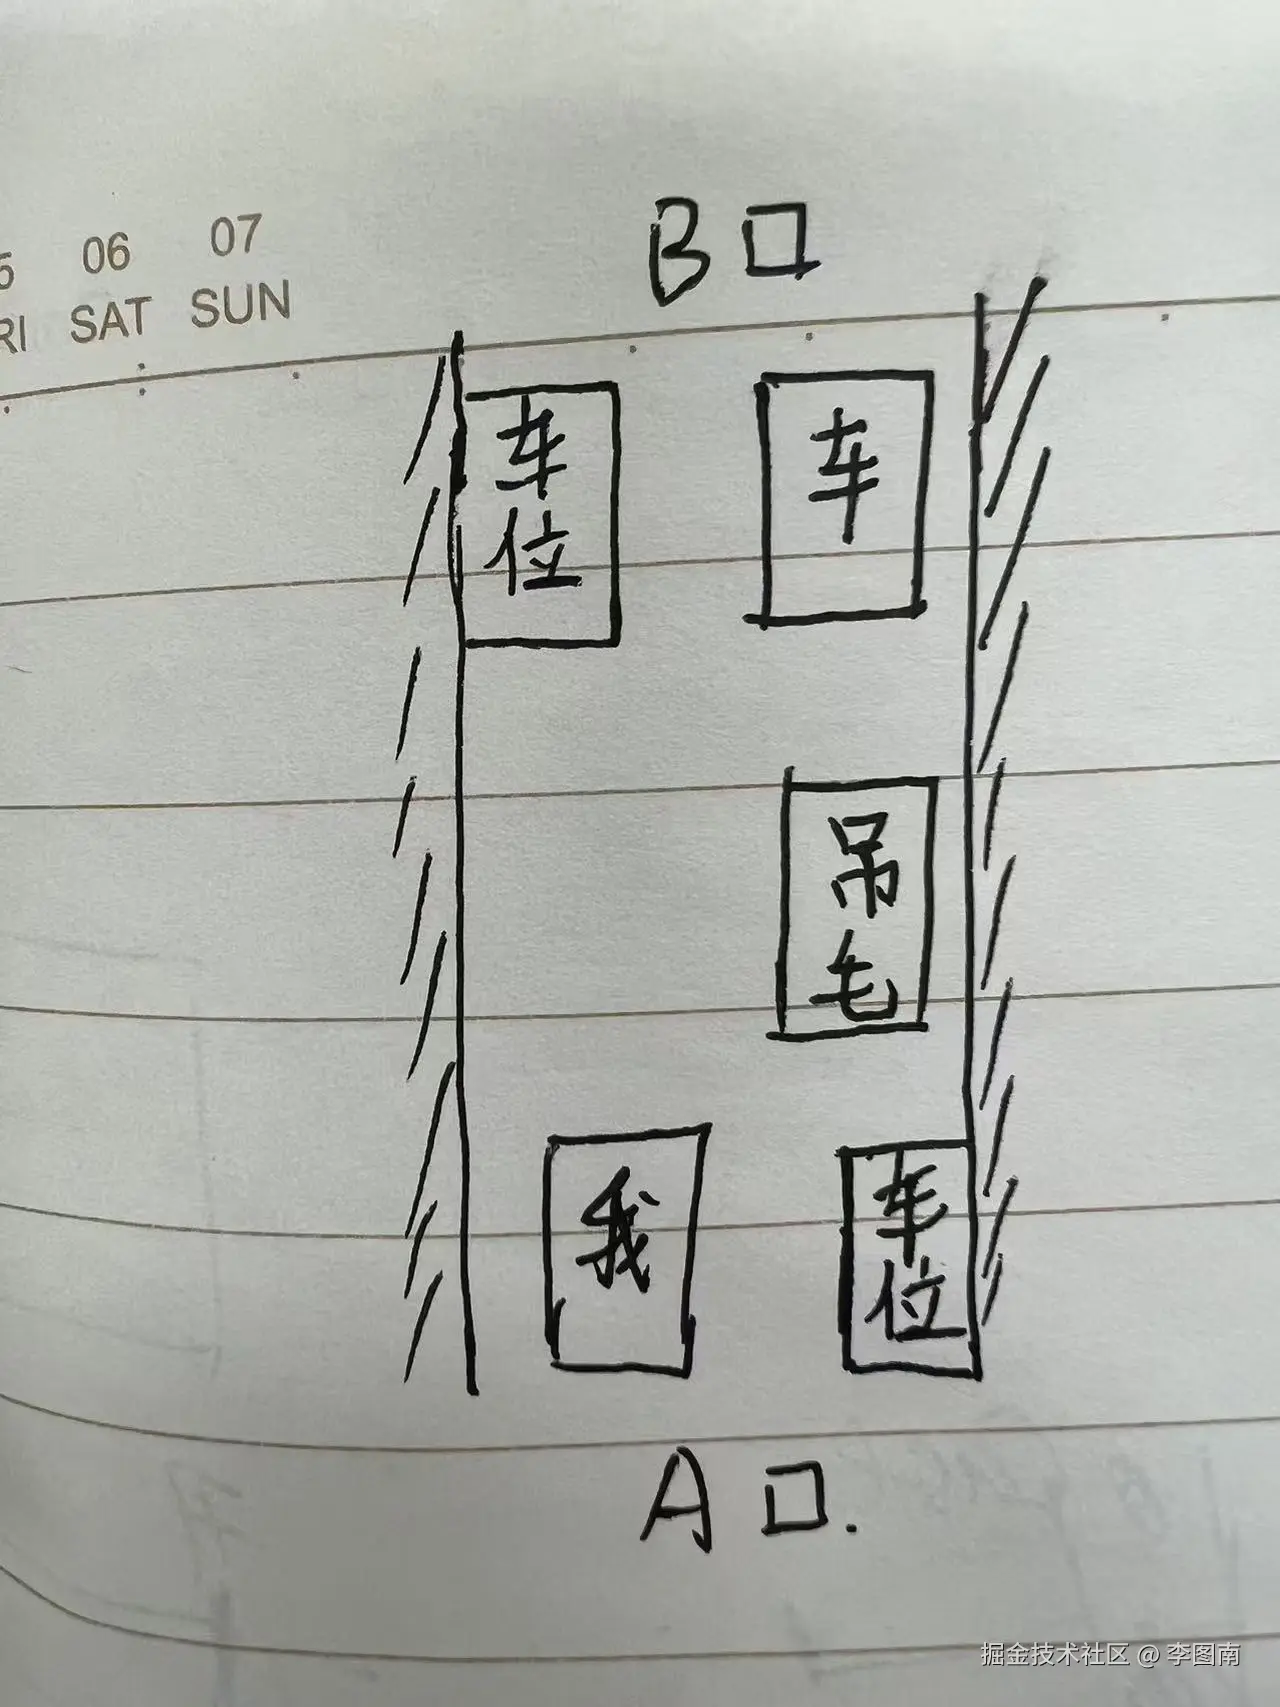 B口
06 07
SAT SUN
车位
车
吊毛
我
车位
A口.
掘金技术社区 @ 李图南